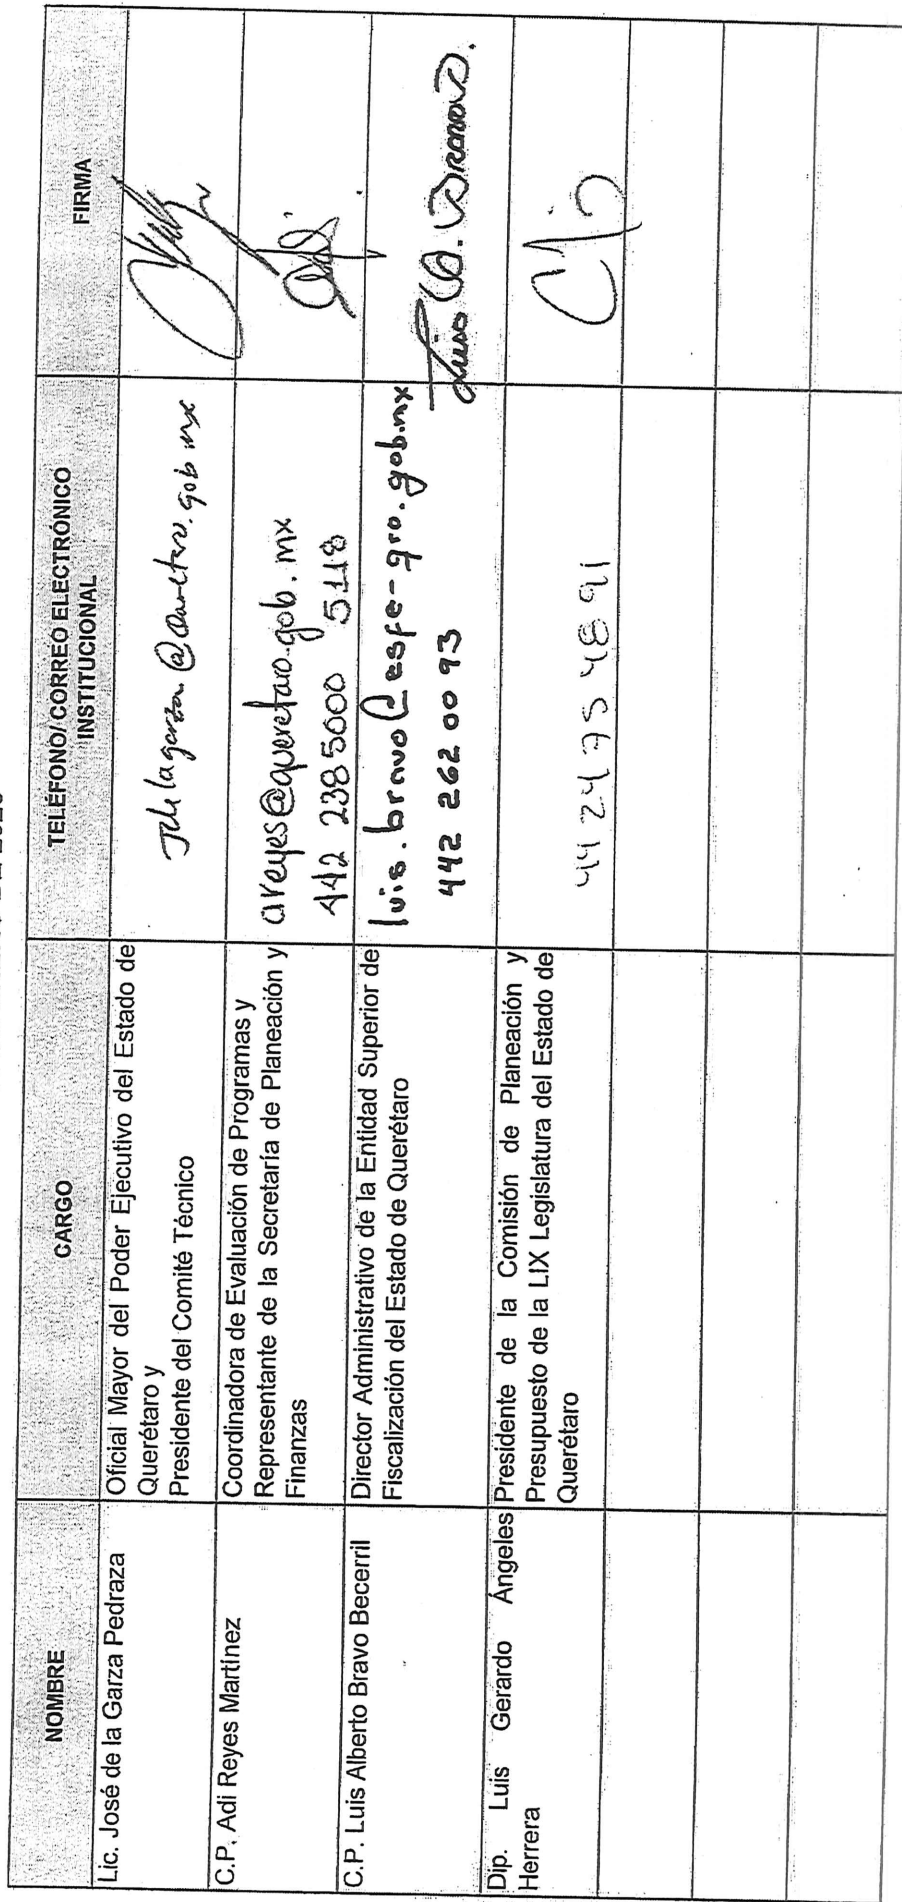 NOMBRE
CARGO
TELÉFONO/ CORREO ELECTRÓNICO
INSTITUCIONAL
FIRMA
Lic. José de la Garza Pedraza
Oficial Mayor del Poder Ejecutivo del Estado de
Querétaro y
Presidente del Comité Técnico
C.P. Adi Reyes Martínez
Coordinadora de Evaluación de Programas y
Representante de la Secretaría de Planeación y
Finanzas
areyes@queretaro.gob.mx
442 238 5000 5118
C.P. Luis Alberto Bravo Becerril
Director Administrativo de la Entidad Superior de
Fiscalización del Estado de Querétaro
luis.bravo@esfe-qro.gob.mx
442 262 00 93
Dip. Luis Gerardo Ángeles
Herrera
Presidente de la Comisión de Planeación y
Presupuesto de la LIX Legislatura del Estado de
Querétaro